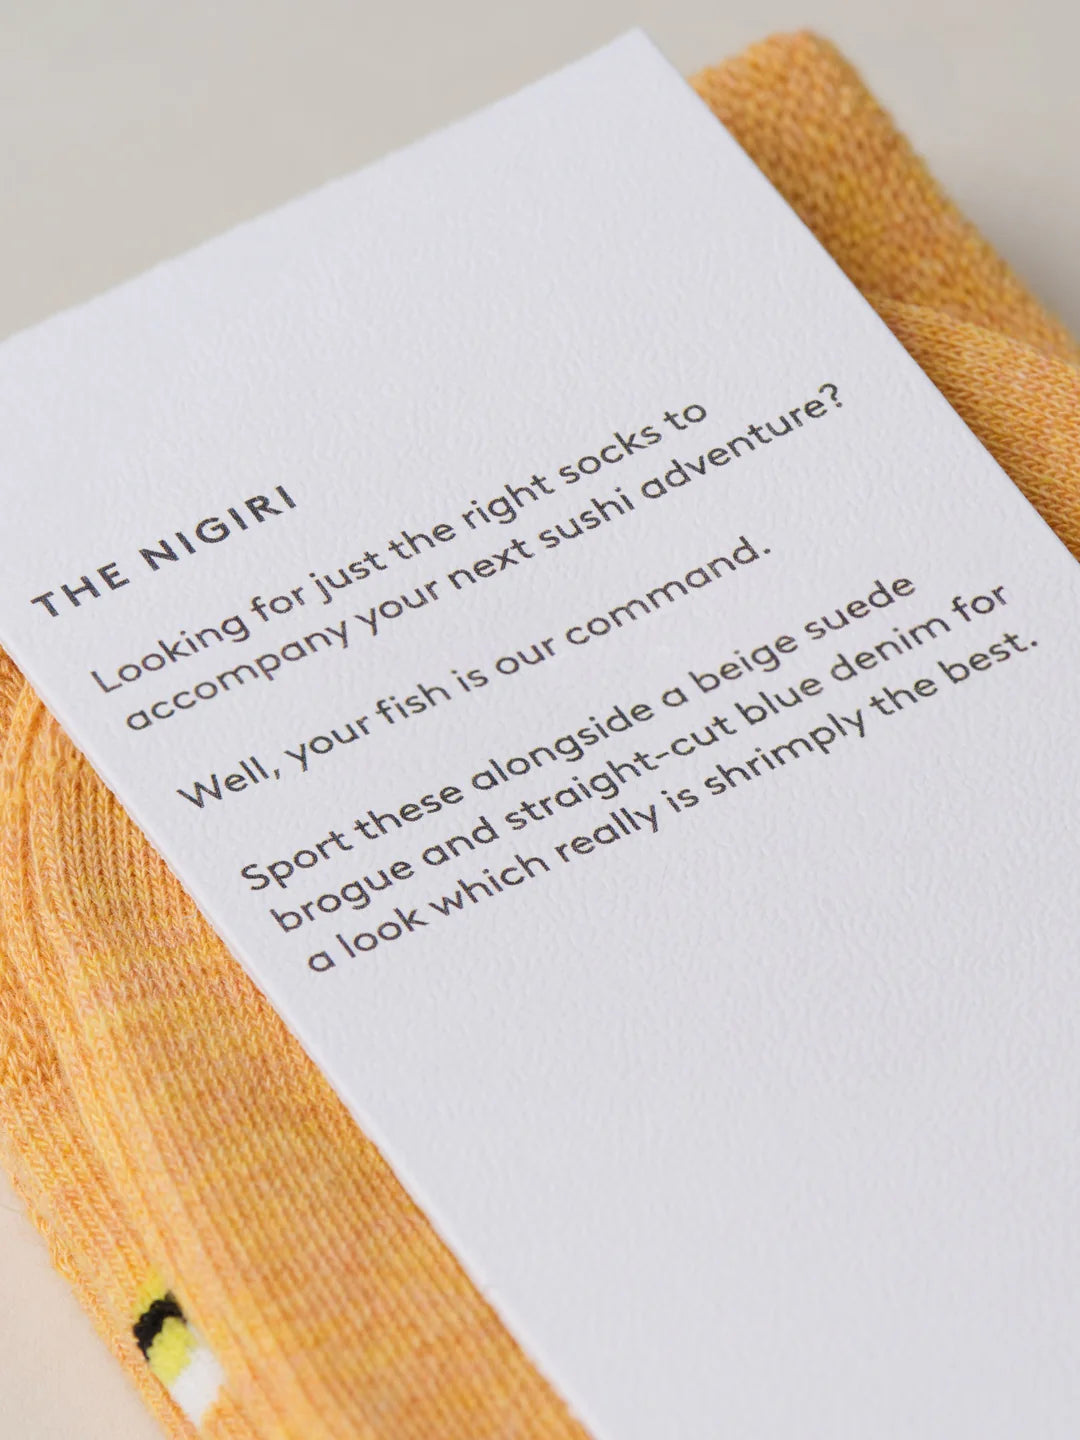 THE NIGIRI
Looking for just the right socks to
accompany your next sushi adventure?
Well, your fish is our command.
Sport these alongside a beige suede
brogue and straight-cut blue denim for
a look which really is shrimply the best.